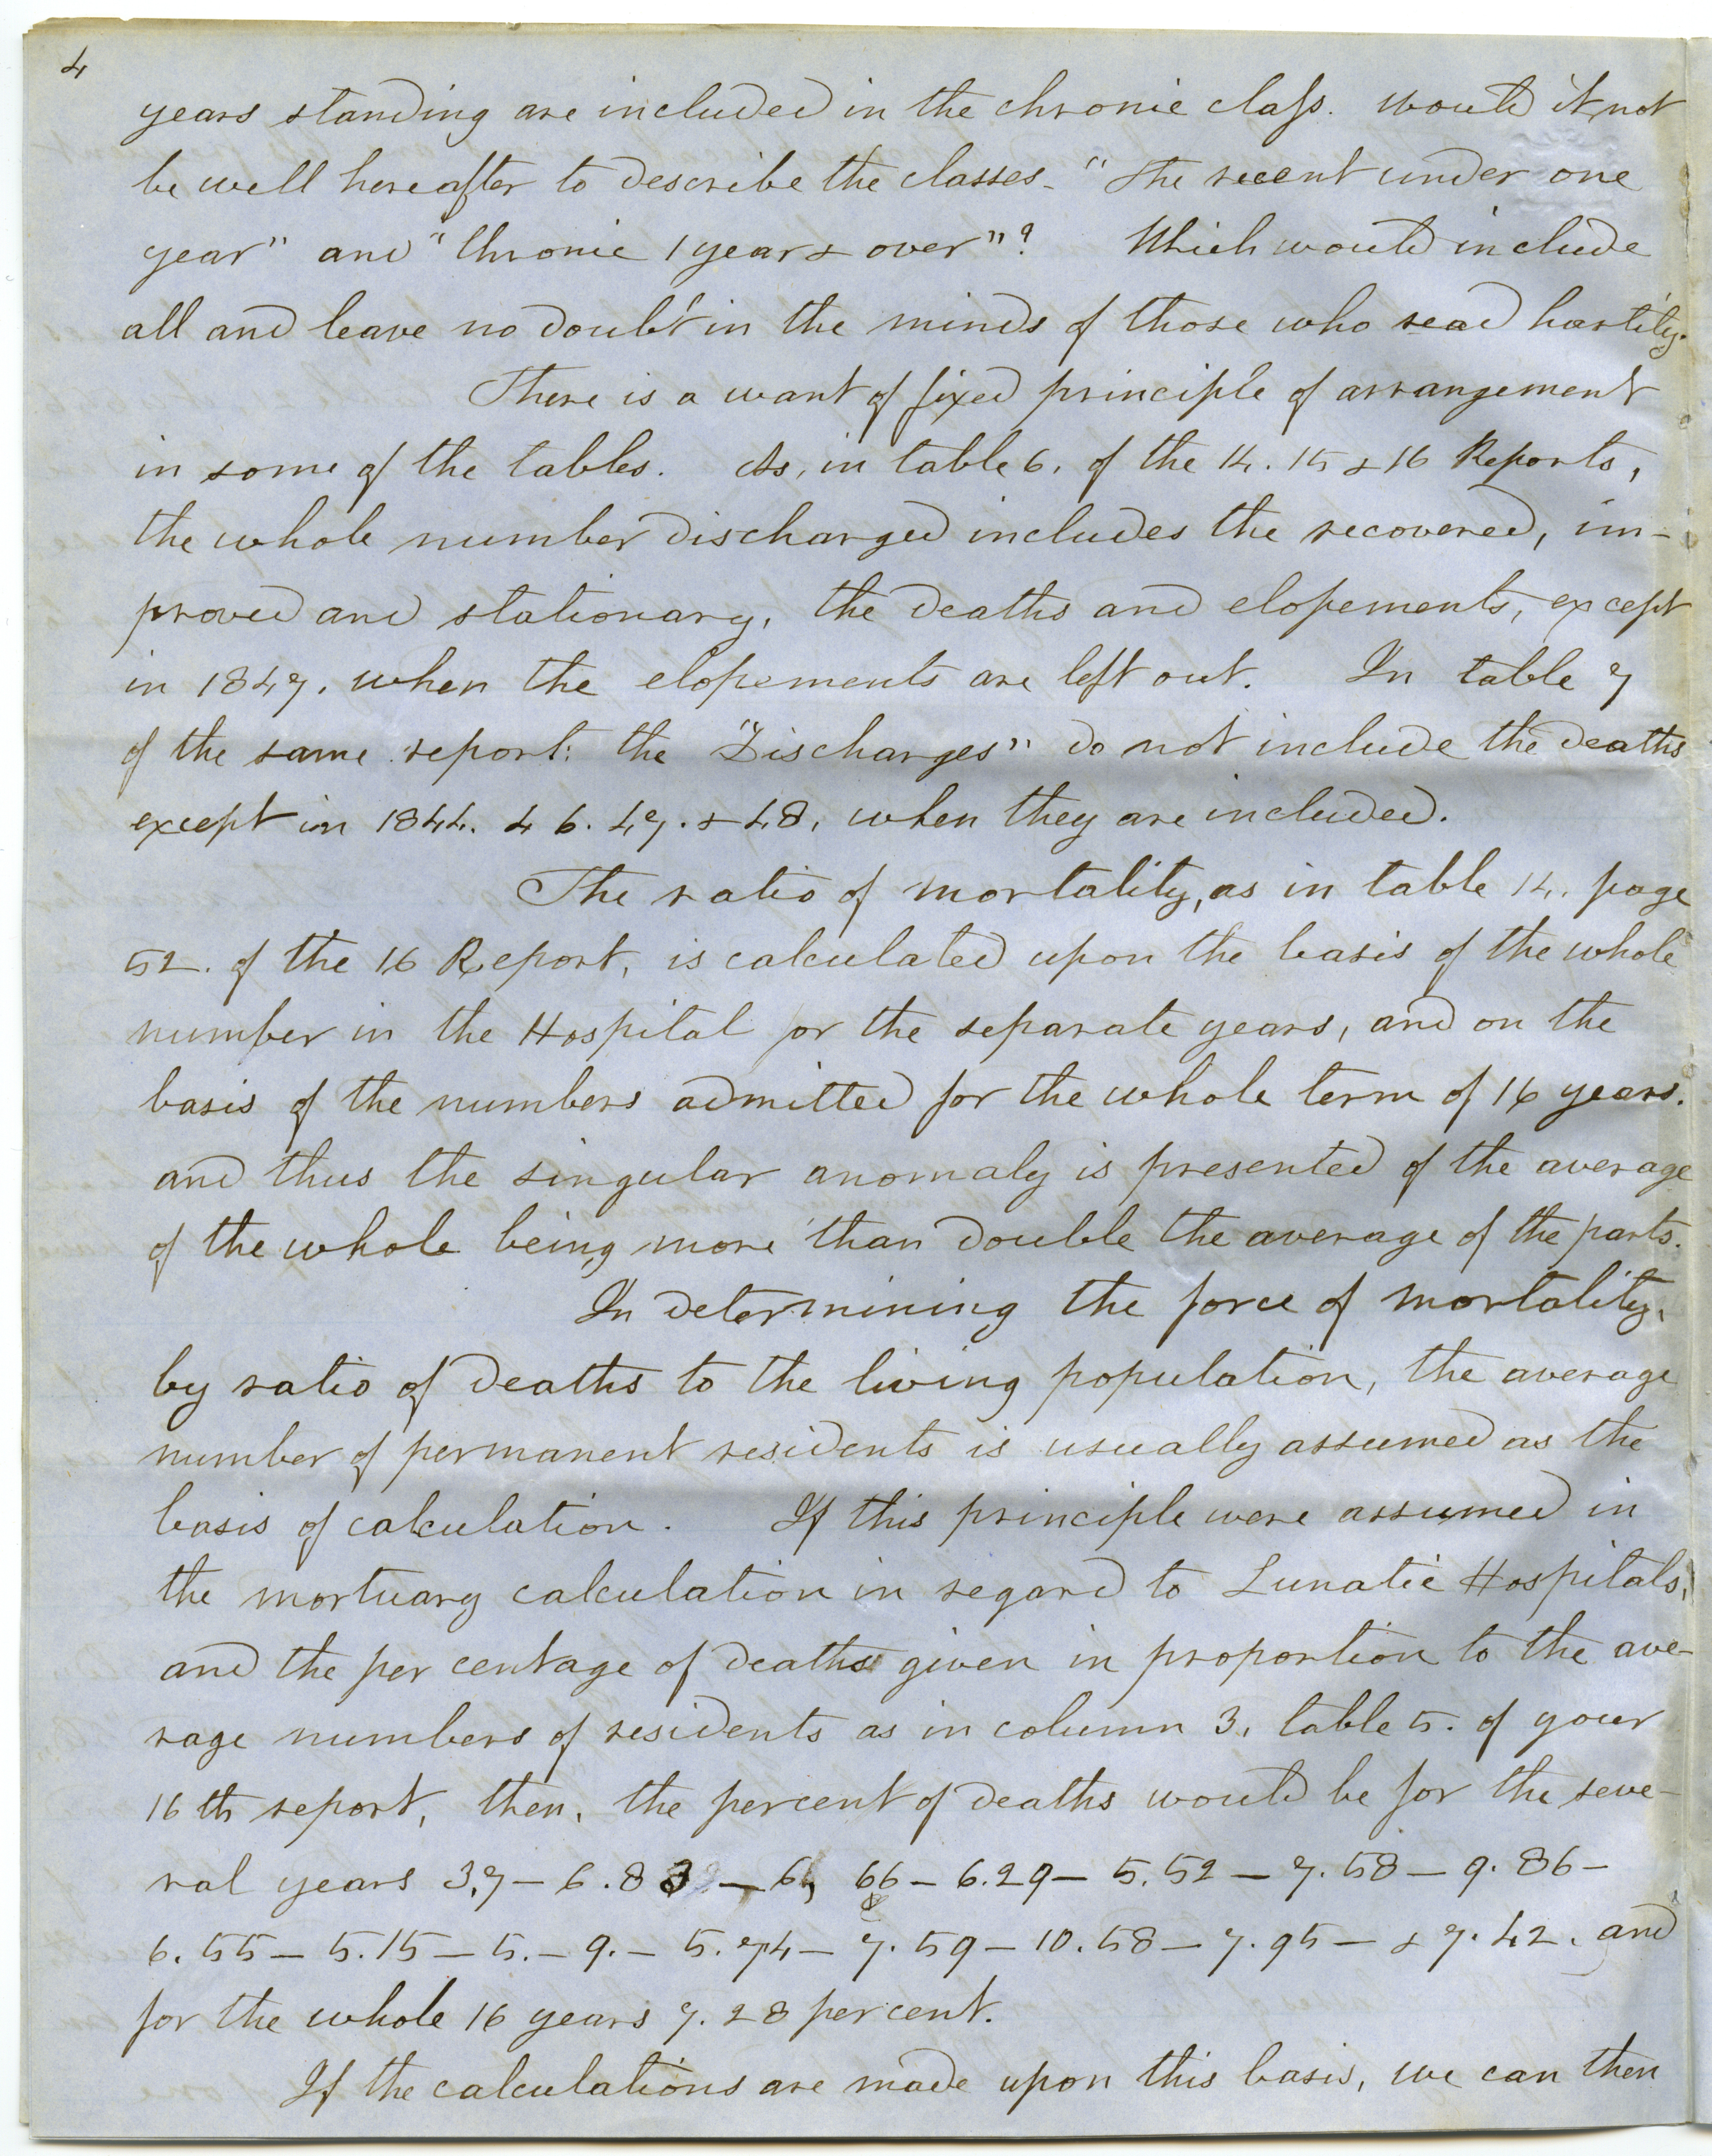 4
years standing are included in the chronic class. would it not
be well hereafter to describe the classes - "The recent under one
year" and "Chronic 1 year & over"? Which would include
all and leave no doubt in the minds of those who read hastily.
There is a want of fixed principle of arrangement
in some of the tables. As, in table 6. of the 14. 15 & 16 Reports,
the whole number discharged includes the recovered, im-
proved and stationary, the deaths and elopements, except
in 1847, when the elopements are left out. In table 7
of the same report: the "Discharges" do not include the deaths
except in 1844. 46. 47. & 48, when they are included.
The ratio of mortality, as in table 14. page
52. of the 16 Report, is calculated upon the basis of the whole
number in the Hospital for the separate years, and on the
basis of the numbers admitted for the whole term of 16 years.
and thus the singular anomaly is presented of the average
of the whole being more than double the average of the parts.
In determining the force of mortality,
by ratio of deaths to the living population, the average
number of permanent residents is usually assumed as the
basis of calculation. If this principle were assumed in
the mortuary calculation in regard to Lunatic Hospitals,
and the per centage of deaths given in proportion to the ave-
rage numbers of residents as in column 3, table 5. of your
16th report, then, the percent of deaths would be for the seve-
ral years 3.7 - 6.83 - 6, 66 - 6.29 - 5.52 - 7.58 - 9.86 -
6.55 - 5.15 - 5. - 9. - 5.74 - 7.59 - 10.58 - 7.95 - & 7.42. and
for the whole 16 years 7.28 per cent.
If the calculations are made upon this basis, we can then